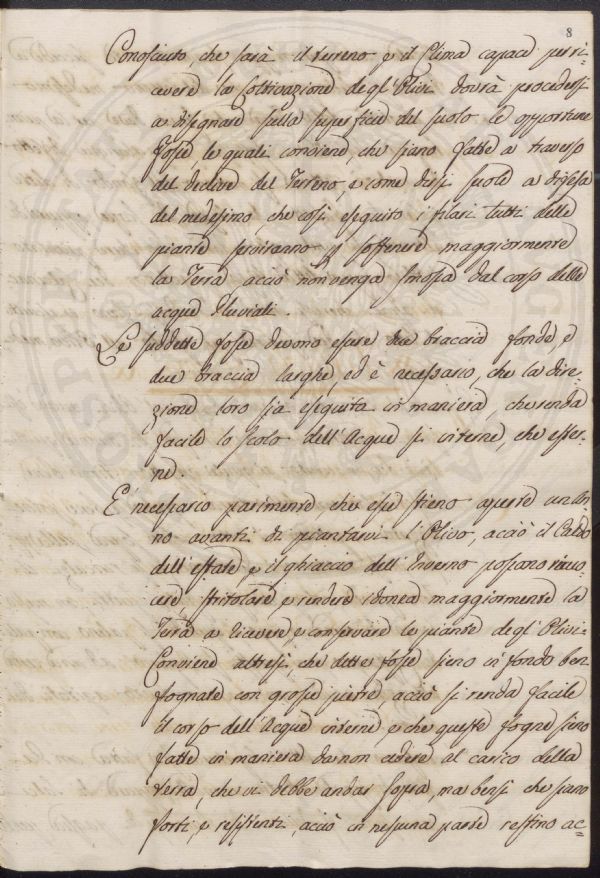 8
Conosciuto, che sarà il terreno e il Clima capace per ri-
cevere la Coltivazione degl'Olivi dovrà procedersi
a disegnare sulla superficie del suolo le opportune
fosse le quali conviene, che siano fatte a traverso
del declive del Terreno, e come dicesi suole a difesa
del medesimo, che così eseguito i filari tutti delle
piante serviranno p sostenere maggiormente
la Terra acciò non venga smossa dal corso delle
acque Pluviali.
Le suddette fosse devono essere due braccia fonde, e
due braccia larghe, ed è necessario, che la dire-
zione loro sia eseguita in maniera, che renda
facile lo scolo dell'Acque sì interne, che ester-
ne.
È necessario parimente che esse stieno aperte un An-
no avanti di piantarvi l'Olivo, acciò il Caldo
dell'estate, e il ghiaccio dell'Inverno possano
cere stritolare e rendere idonea maggiormente la
Terra a ricevere e conservare le piante degl'Olivi-
Conviene altresì, che dette fosse sieno in fondo ben
fognate con grosse pietre, acciò si renda facile
il corso dell'Acque interne, e che queste fogne sieno
fatte in maniera da non cedere al carico della
terra, che vi debbe andar sopra, ma bensì che siano
forti, e resistenti, acciò in nessuna parte restino ac=